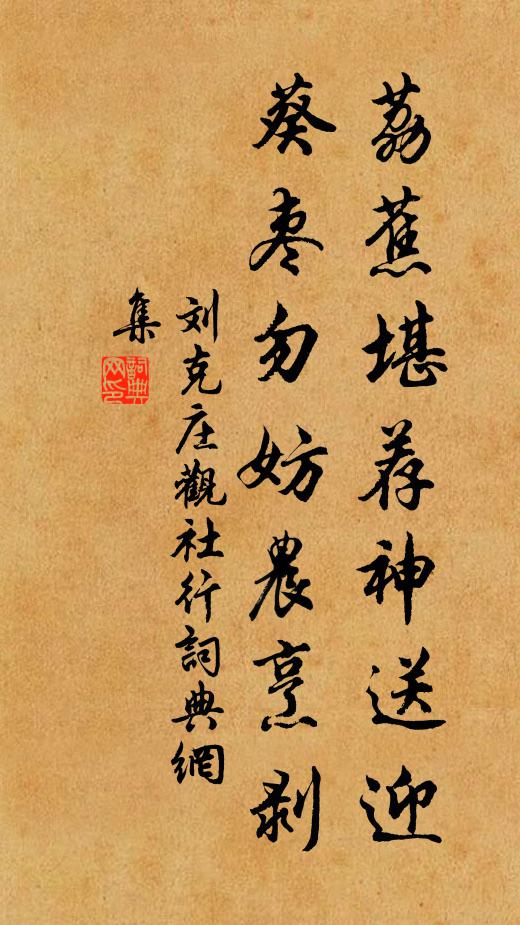 荔蕉堪荐神送迎
葵枣勿妨農烹剥
刘克庄觀社行詞典網
集
詞典網印